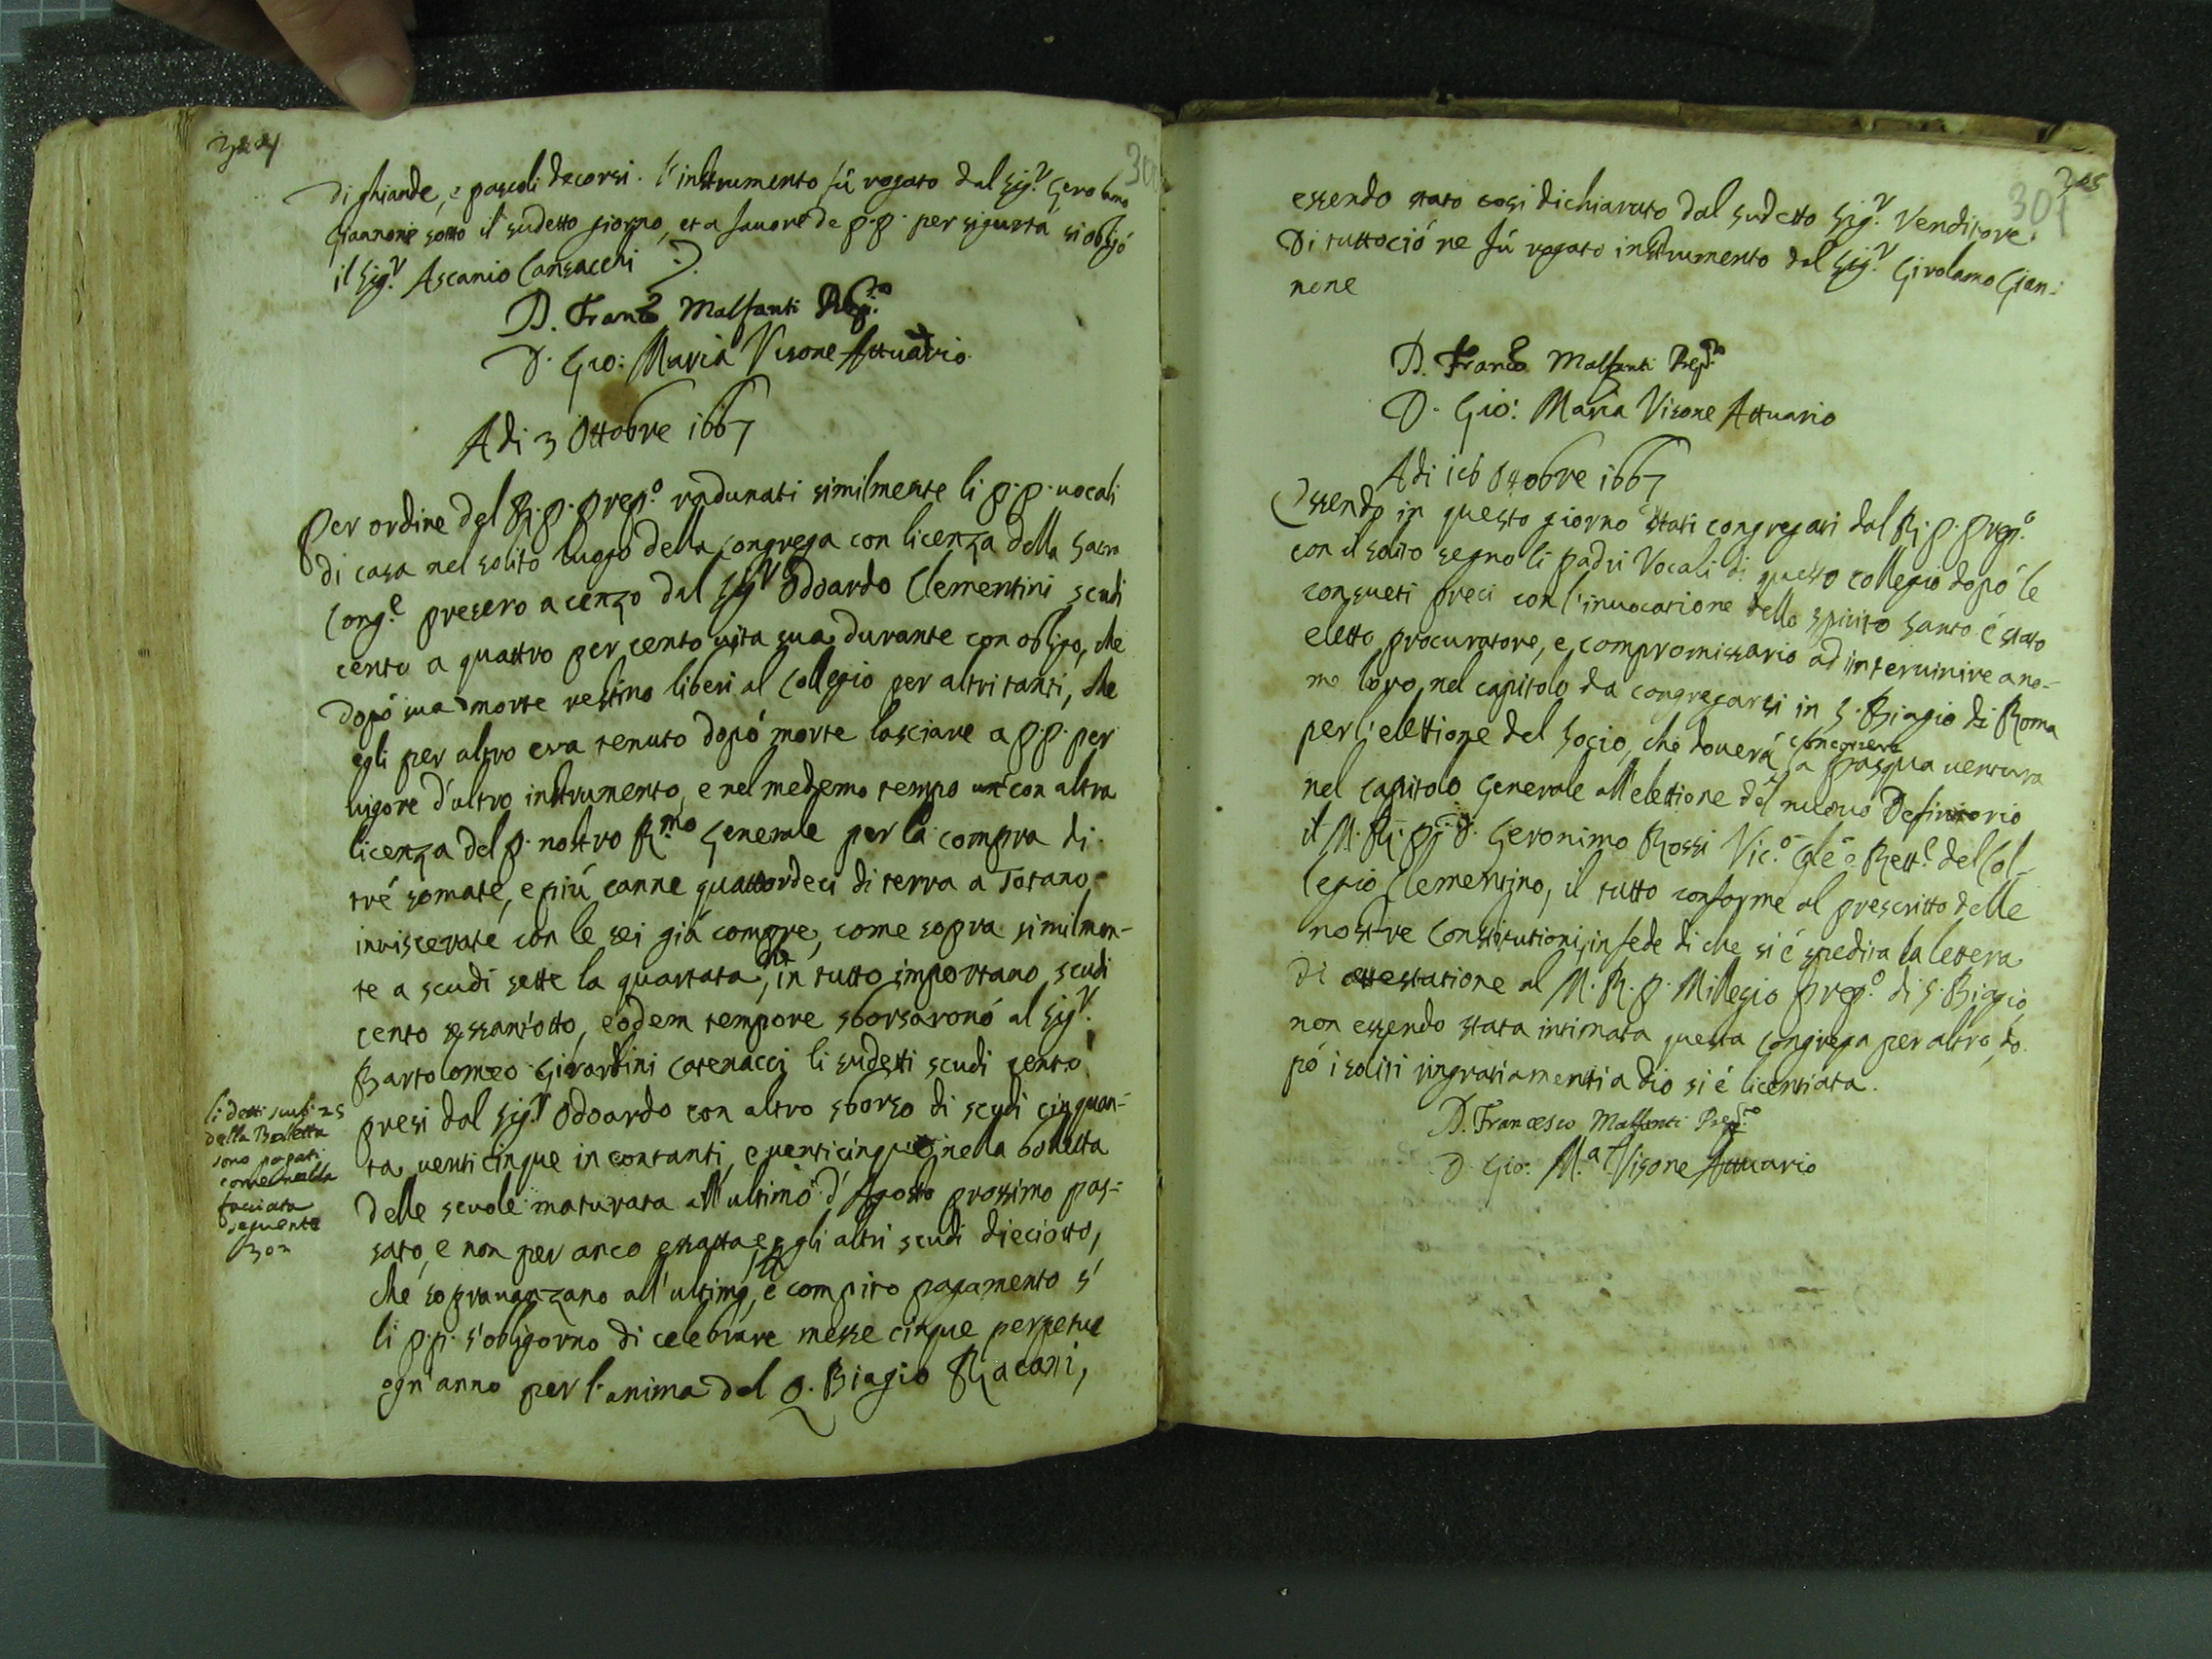 di ghiande, e pascoli decorsi. L'instrumento fù rogato dal Sig.r Gerolamo
Giannone sotto il sudetto giorno, et a favore de p.p. per sigurtà si obligò
il Sig.r Ascanio Cansacchi
D. Fran.co Malfanti Prep.to
D. Gio: Maria Visone Attuario
Adi 3 Ottobre 1667
Per ordine del R. p. prep.o radunati similmente li p.p. vocali
di casa nel solito luogo della congrega con licenza della Sacra
Cong.e presero a cenzo dal Sig.r Odoardo Clementini scudi
cento a quattro per cento vita sua durante con obligo, che
dopò sua morte restino liberi al Collegio per altri tanti, che
egli per altro era tenuto dopò morte lasciare a p.p. per
vigore d'altro instrumento, e nel medemo tempo con altra
licenza del p. nostro R.mo Generale per la compra di
trè somate, e più canne quattordeci di terra a Totano,
inviscerate con le sei già compre, come sopra similmen-
te a scudi sette la quartata, che in tutto importano scudi
cento sessant'otto, eodem tempore sborsaronó al Sig.r
Bartolomeo Girardini Catenacci li sudetti scudi cento
presi dal Sig.r Odoardo con altro sborso di scudi cinquan-
ta venticinque in contanti, e venticinque nella bolletta
delle scuole maturata all'ultimo d'Agosto prossimo pas-
sato, e non per anco esatta, e per gli altri scudi dieciotto,
che sopravanzano all'ultimo, e compito pagamento
li p.p. s'obligorno di celebrare messe cinque perpetue
ogn'anno per l'anima del q. Biagio Racani,
li detti scudi 25
della Bolletta
sono pagati
come nella
facciata
seguente
302
304
305
301
essendo stato cosi dichiarato dal sudetto Sig.r Venditore.
Di tuttociò ne fú rogato instrumento dal Sig.r Girolamo Gian-
none
D. Fran.co Malfanti Prep.to
D. Gio: Maria Visone Attuario
Adi 16 Ottobre 1667
Essendo in questo giorno stati congregati dal R. p. prep.o
con il solito segno li padri Vocali di questo collegio dopò le
consueti preci con l'invocatione dello Spirito Santo é stato
eletto procuratore, e compromissario ad intervinire a no-
me loro nel capitolo da congregarsi in S. Biagio di Roma
per l'elettione del Socio, che doverá concorrere la pasqua ventura
nel capitolo Generale all'elettione del nuovo Definitorio
il M. R. p. D. Geronimo Rossi Vic.o Gle e Rett.e del Col-
legio Clementino, il tutto conforme al prescritto delle
nostre Constitutioni, in fede di che si é spedita la lettera
di attestatione al M. R. p. Millesio prep.o di S. Biagio
non essendo stata intimata questa congrega per altro, do-
pò i soliti ringratiamenti a Dio si é licentiata.
D. Francesco Malfanti Prep.to
D. Gio: M.a Visone Attuario